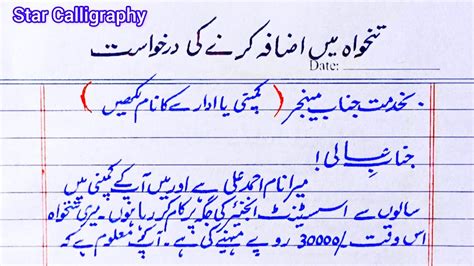 Star Calligraphy
تنخواہ میں اضافہ کرنے کی درخواست
Date:
بخدمت جناب مینجر ( کمپنی یا ادارے کا نام لکھیں )
جناب عالی!
میرا نام احمد علی ہے اور میں آپ کے کمپنی میں
سالوں سے اسسٹینٹ انجنئیر کی جگہ پر کام کر رہا ہوں۔ میری تنخواہ
اس وقت 30000/- روپے مہینے کی ہے۔ آپ کو معلوم ہے کہ